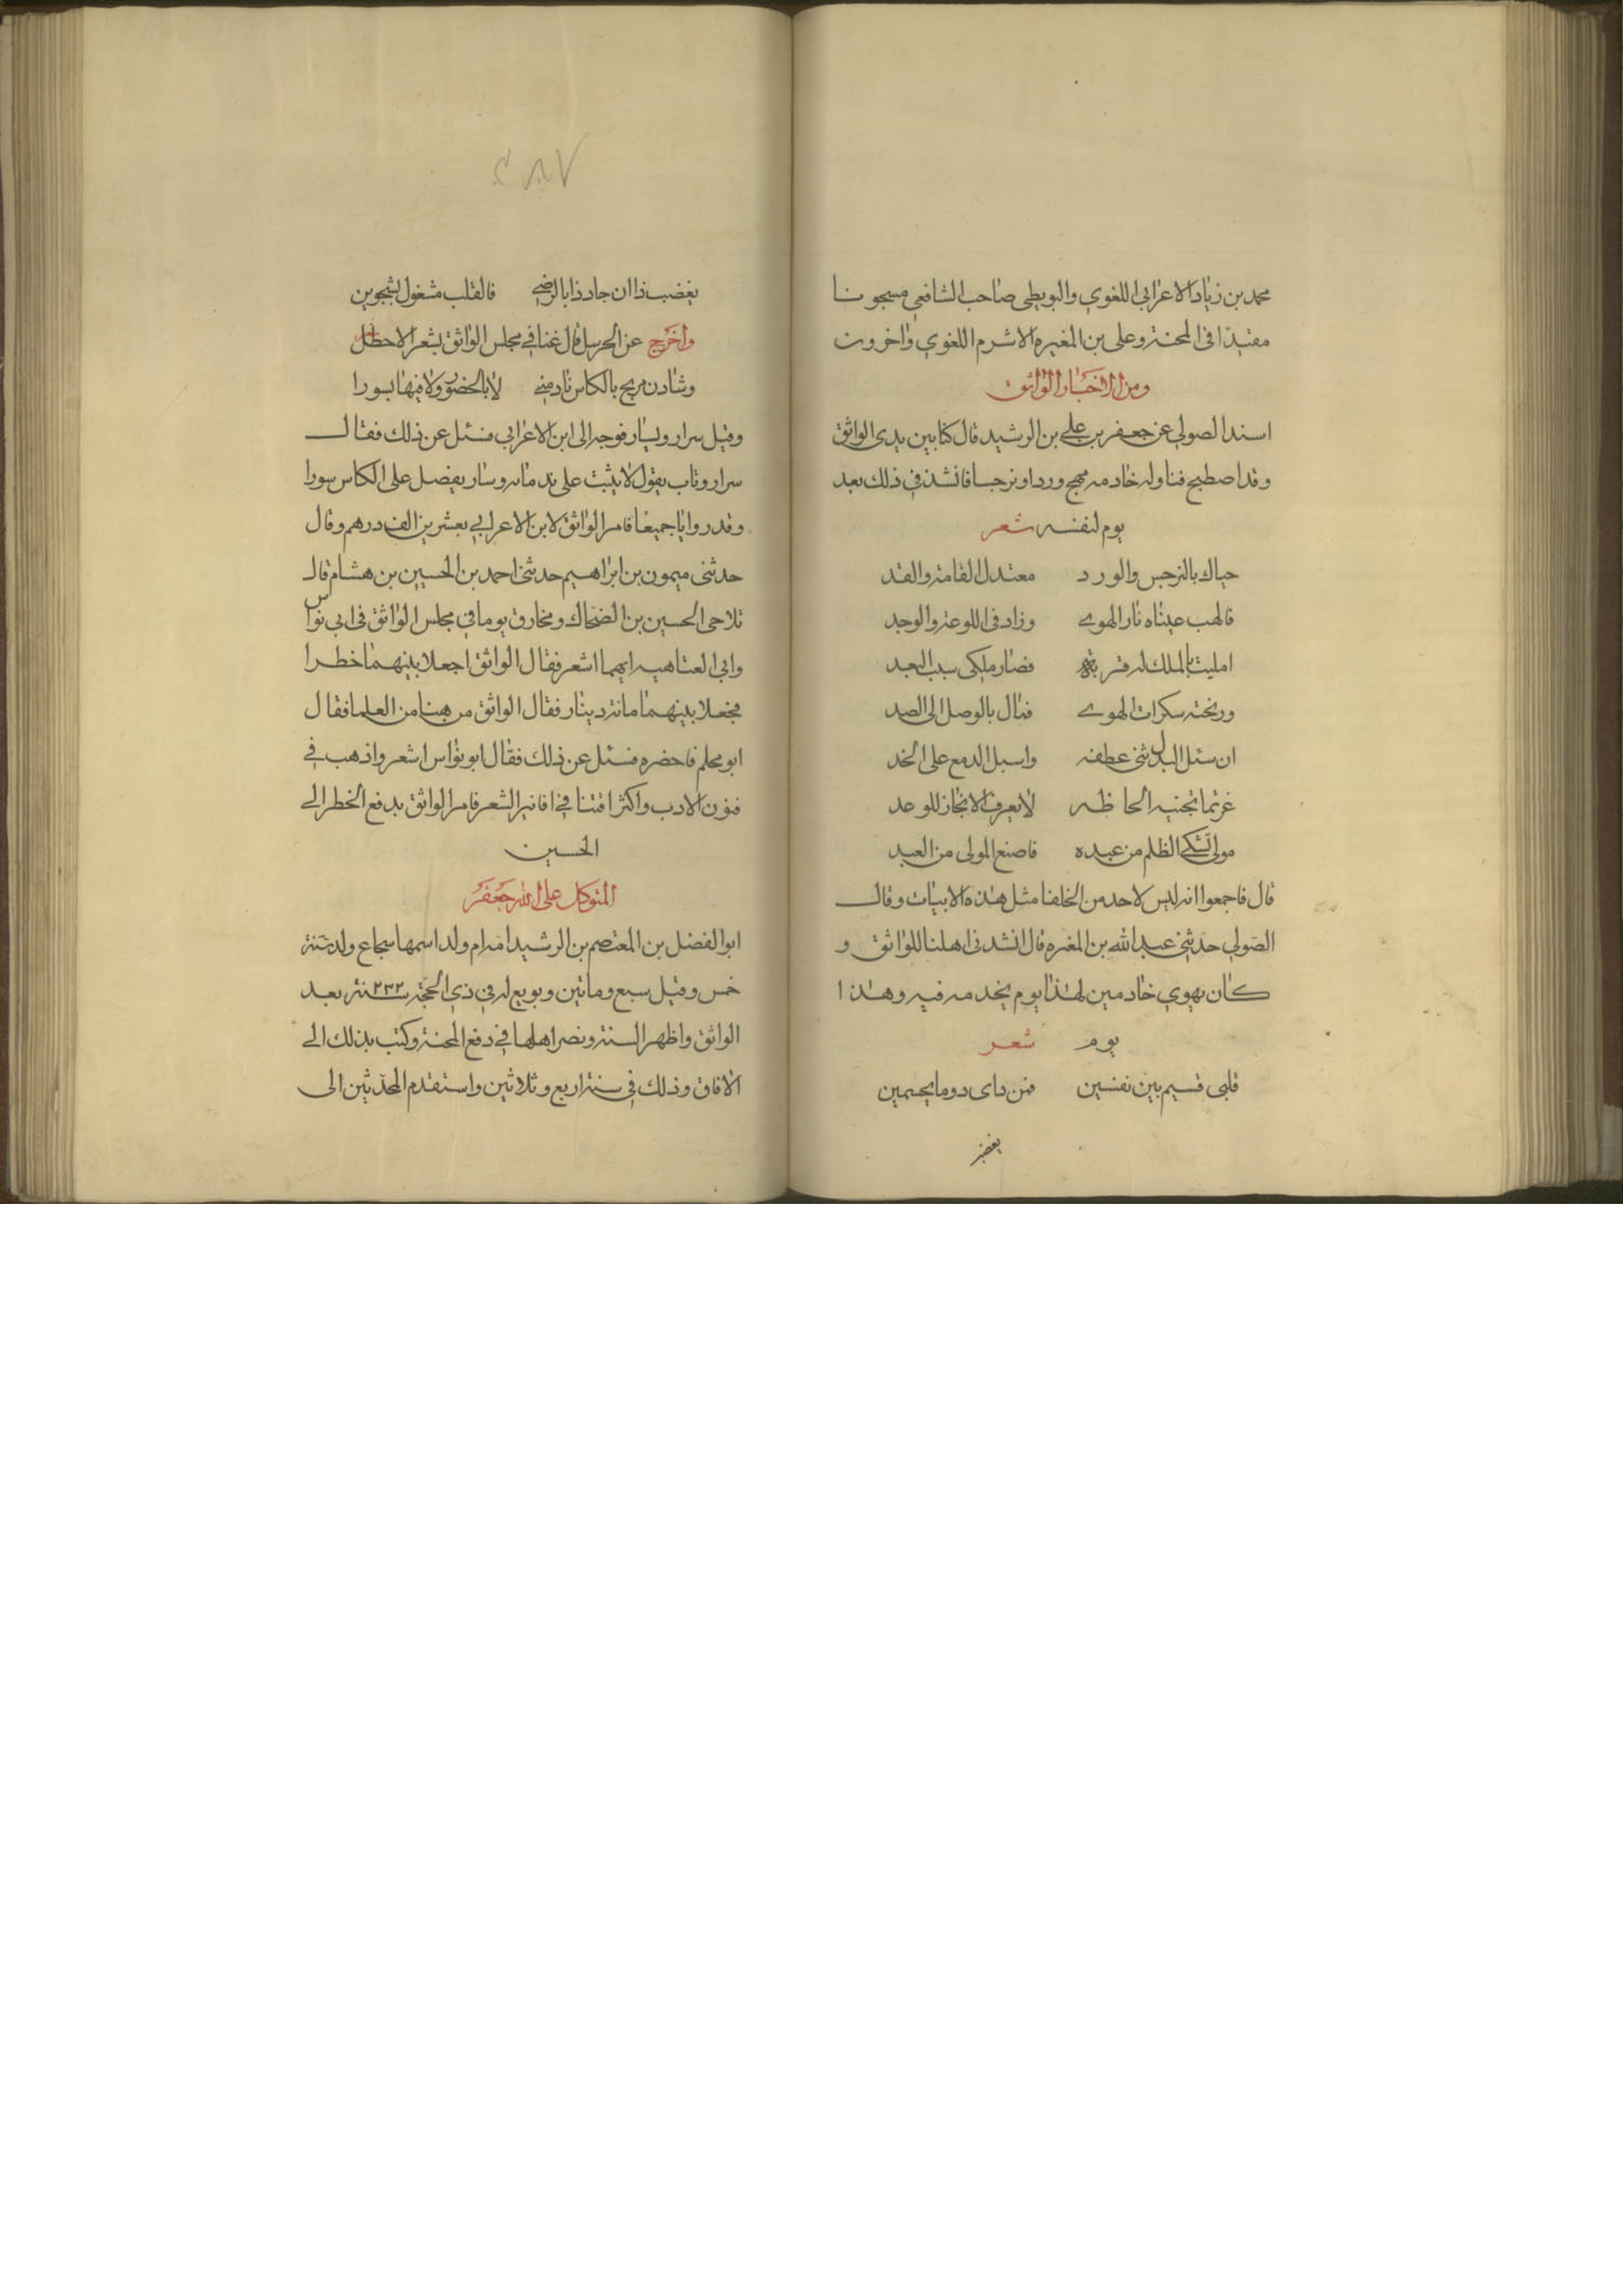 محمد بن زياد الاعرابي اللغوي والبويطي صاحب الشافعي مسجونا
مقيدا في المحنة وعلي بن المغيره الاشرم اللغوي واخرون
ومن الاخبار الواثق
اسند الصولي عن جعفر بن علي بن الرشيد قال كنا بين يدي الواثق
وقد اصطبح فناوله خادمه مهج وردا ونرجسا فانشد في ذلك بعد
يوم لنفسه شعر
حياك بالنرجس والورد معتدل القامة والقد
فالهب عيناه نار الهوي وزاد في اللوعة والوجد
امليت بالملك له قربه فصار ملكي سبب البعد
ورنحته سكرات الهوي فمال بالوصل الى الصد
ان سئل البدل ثنى عطفه واسبل الدمع على الخد
غر بما تجنيه الحاظه لا يعرف الانجاز للوعد
مولى تشكي الظلم من عبده فاصنع المولى من العبد
قال فاجمعوا انه ليس لاحد من الخلفا مثل هذه الابيات وقال
الصولي حدثني عبد الله بن المغره قال انشدني اهلنا للواثق و
كان يهوي خادمين لهذا يوم يخدمه فيه وهذا
يوم شعر
قلبي قسيم بين نفسين فمن داى دوما يجيمين
يغضب
٢٨٧
يغضب ذا ان جاد ذا بالرضي فالقلب مشغول بشجوين
واخرج عن الحرسل قال غنا في مجلس الواثق بشعر الاخطل
وشادن مريح بالكاس نادمني لا بالحضور ولا فيها بسورا
وقيل سرار ويسار فوجه الى ابن الاعرابي فسئل عن ذلك فقال
سرار وتاب يقول لا يثبت على ندمانه وسار يفضل على الكاس سورا
وقد رويا جميعا فامر الواثق لابن الاعرابي بعشرين الف درهم وقال
حدثني ميمون بن ابراهيم حدثني احمد بن الحسين بن هشام قال
تلاحى الحسين بن الضحاك ومخارق يوما في مجلس الواثق في ابي نواس
وابي العتاهيه ايهما اشعر فقال الواثق اجعلا بينهما خطرا
فجعلا بينهما مائة دينار فقال الواثق من هنا من العلما فقال
ابو محلم فاحضره فسئل عن ذلك فقال ابو نواس اشعر واذهب في
فنون الادب واكثر افتنا في افانير الشعر فامر الواثق بدفع الخطر الي
الحسين
المتوكل على الله جعفر
ابو الفضل بن المعتصم بن الرشيد امه ام ولد اسمها شجاع ولد سنة
خمس وقيل سبع ومائتين وبويع له في ذي الحجة سنة ٢٣٢ بعد
الواثق واظهر السنة ونصر اهلها في دفع المحنة وكتب بذلك الي
الافاق وذلك في سنة اربع وثلاثين واستقدم المحدثين الى